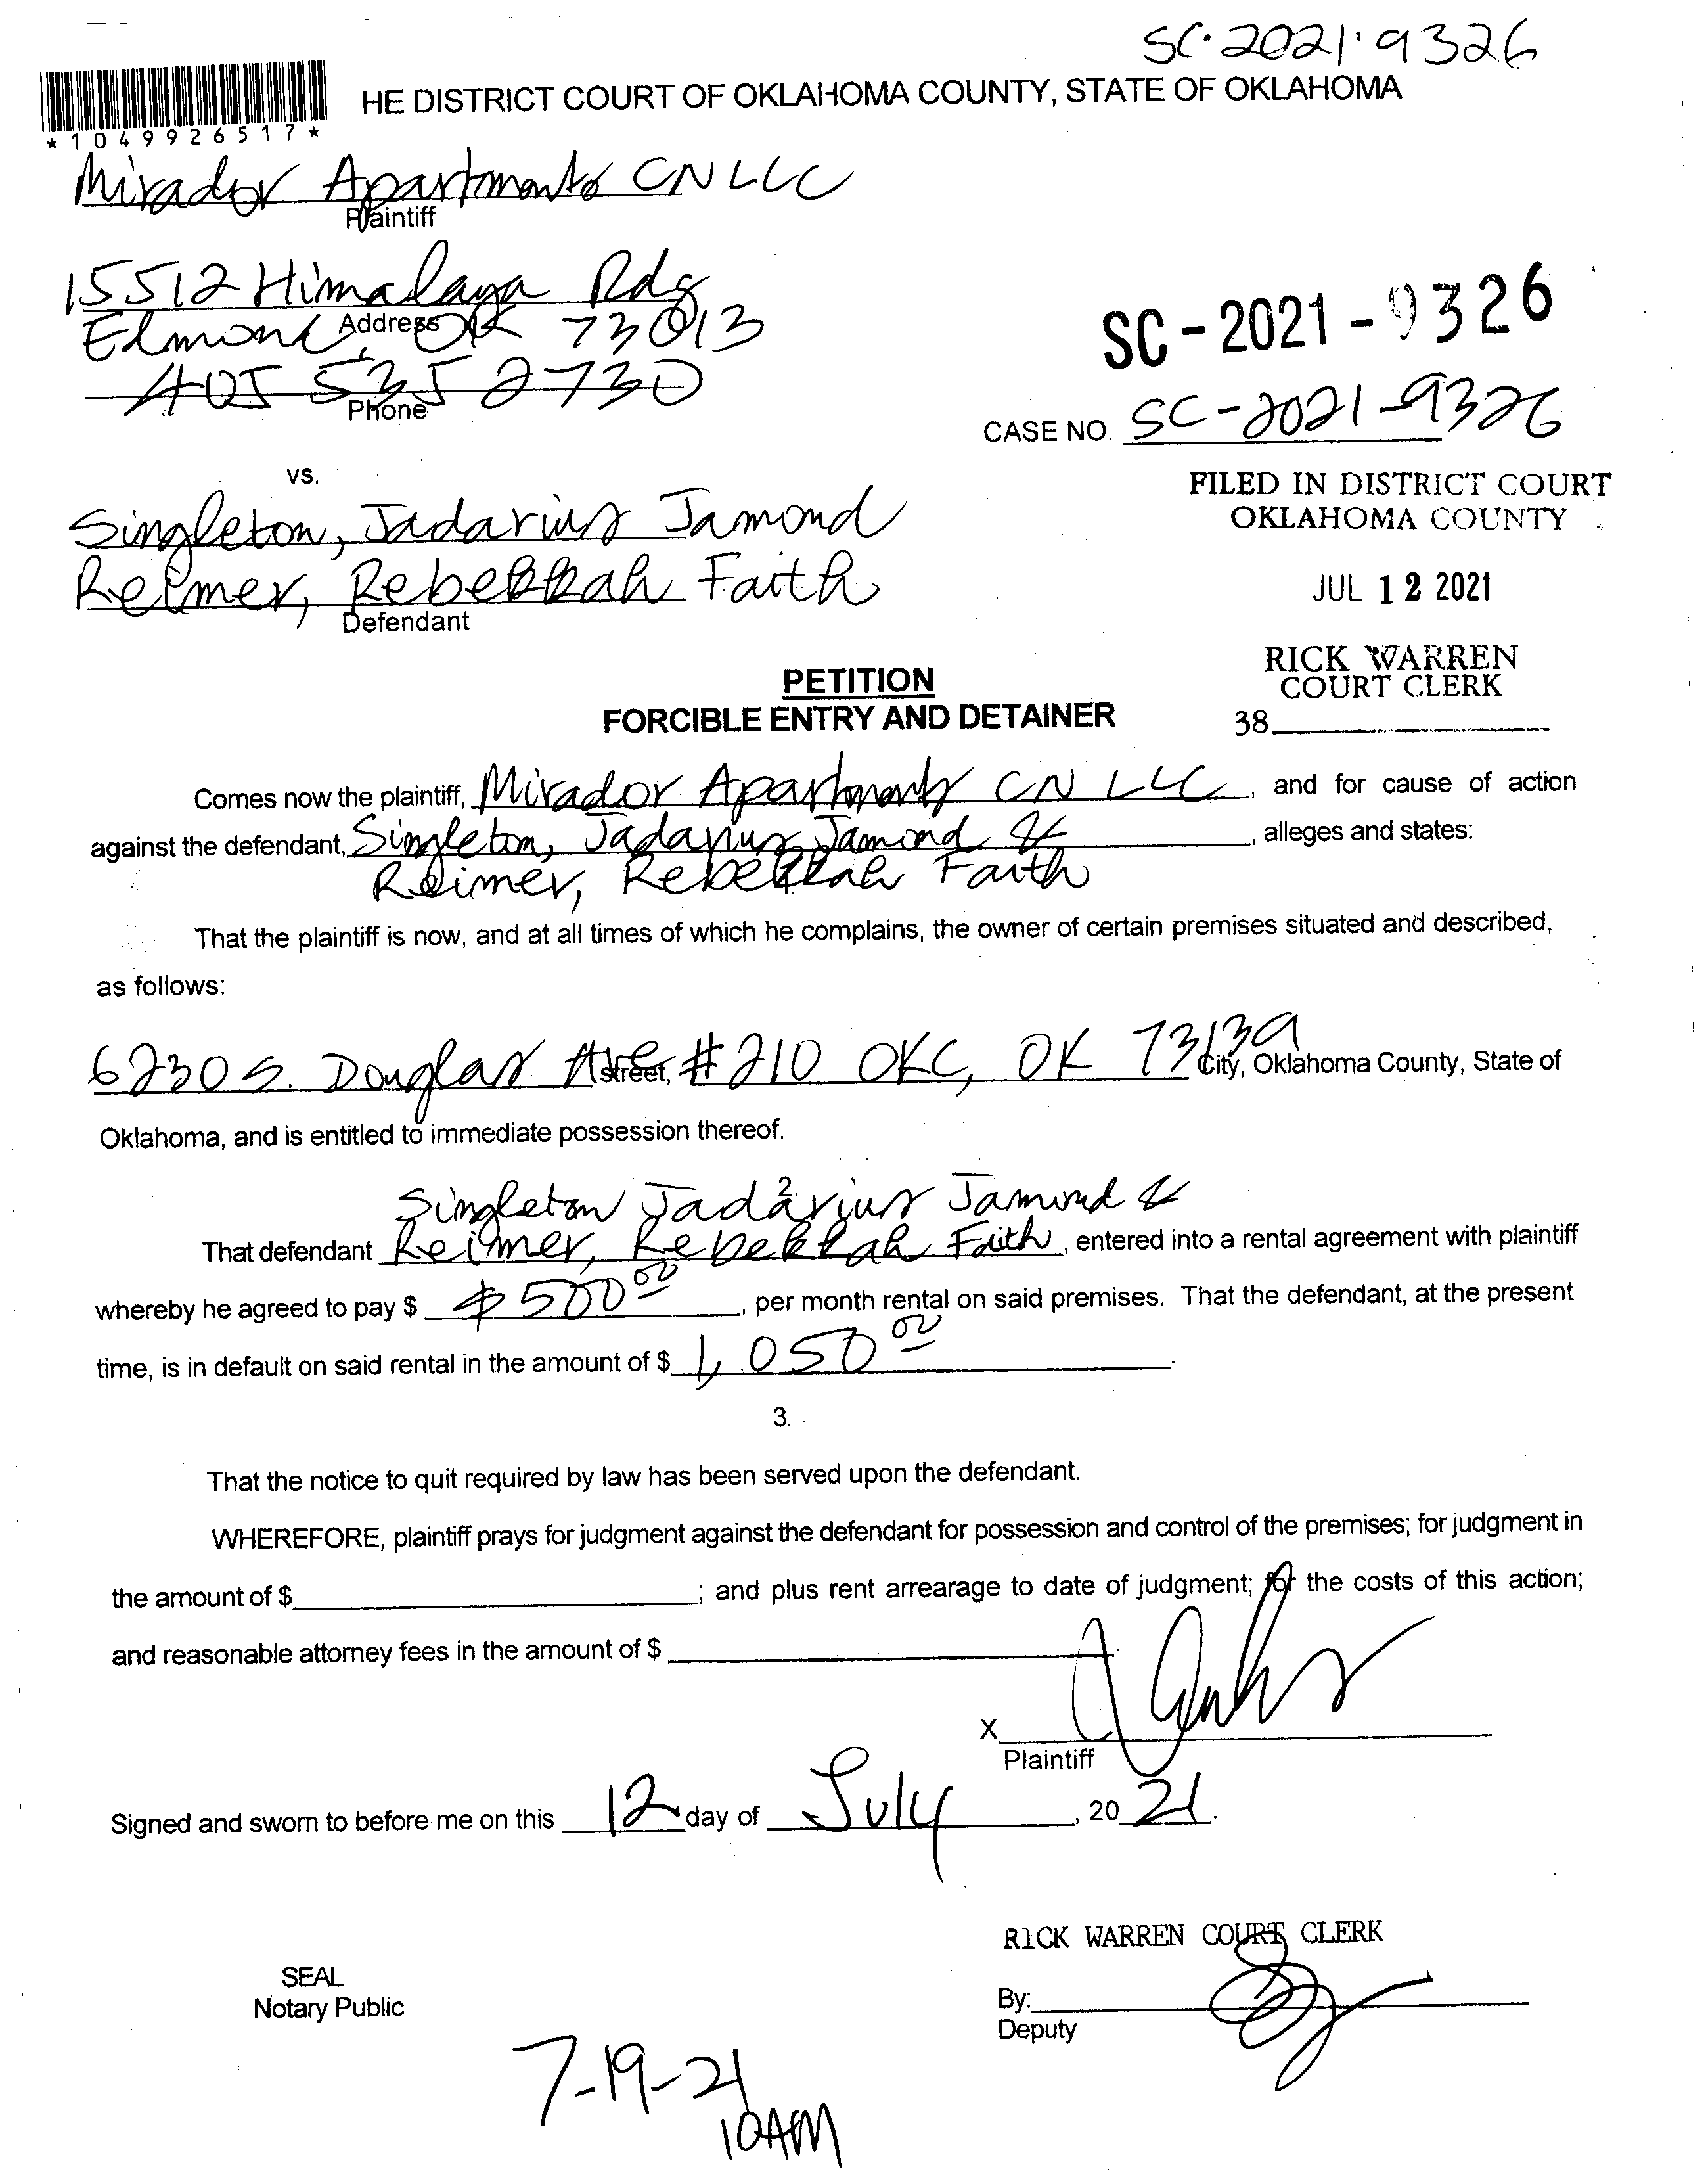 SC·2021·9326
HE DISTRICT COURT OF OKLAHOMA COUNTY, STATE OF OKLAHOMA
*1049926517*
Mirador Apartments CN LLC
Plaintiff
15512 Himalaya Rdg
Address
Elmond, OK 73013
405 535 2730
Phone
SC-2021-9326
CASE NO. SC-2021-9326
vs.
FILED IN DISTRICT COURT
OKLAHOMA COUNTY
Singleton, Jadarius Jamond
Reimer, Rebekkah Faith
Defendant
JUL 12 2021
RICK WARREN
COURT CLERK
38
PETITION
FORCIBLE ENTRY AND DETAINER
Comes now the plaintiff, Mirador Apartments CN LLC, and for cause of action
against the defendant, Singleton, Jadarius Jamond &, alleges and states:
Reimer, Rebekkah Faith
That the plaintiff is now, and at all times of which he complains, the owner of certain premises situated and described,
as follows:
6230 S. Douglas Ave Street, #210 OKC, OK 73139 City, Oklahoma County, State of
Oklahoma, and is entitled to immediate possession thereof.
2.
Singleton Jadarius Jamond &
That defendant Reimer, Rebekkah Faith, entered into a rental agreement with plaintiff
whereby he agreed to pay $ $500 00, per month rental on said premises. That the defendant, at the present
time, is in default on said rental in the amount of $ 1,050 00.
3.
That the notice to quit required by law has been served upon the defendant.
WHEREFORE, plaintiff prays for judgment against the defendant for possession and control of the premises; for judgment in
the amount of $; and plus rent arrearage to date of judgment; for the costs of this action;
and reasonable attorney fees in the amount of $
X
Plaintiff
Signed and sworn to before me on this 12 day of July, 2021.
RICK WARREN COURT CLERK
SEAL
Notary Public
By:
Deputy
7-19-21
10AM